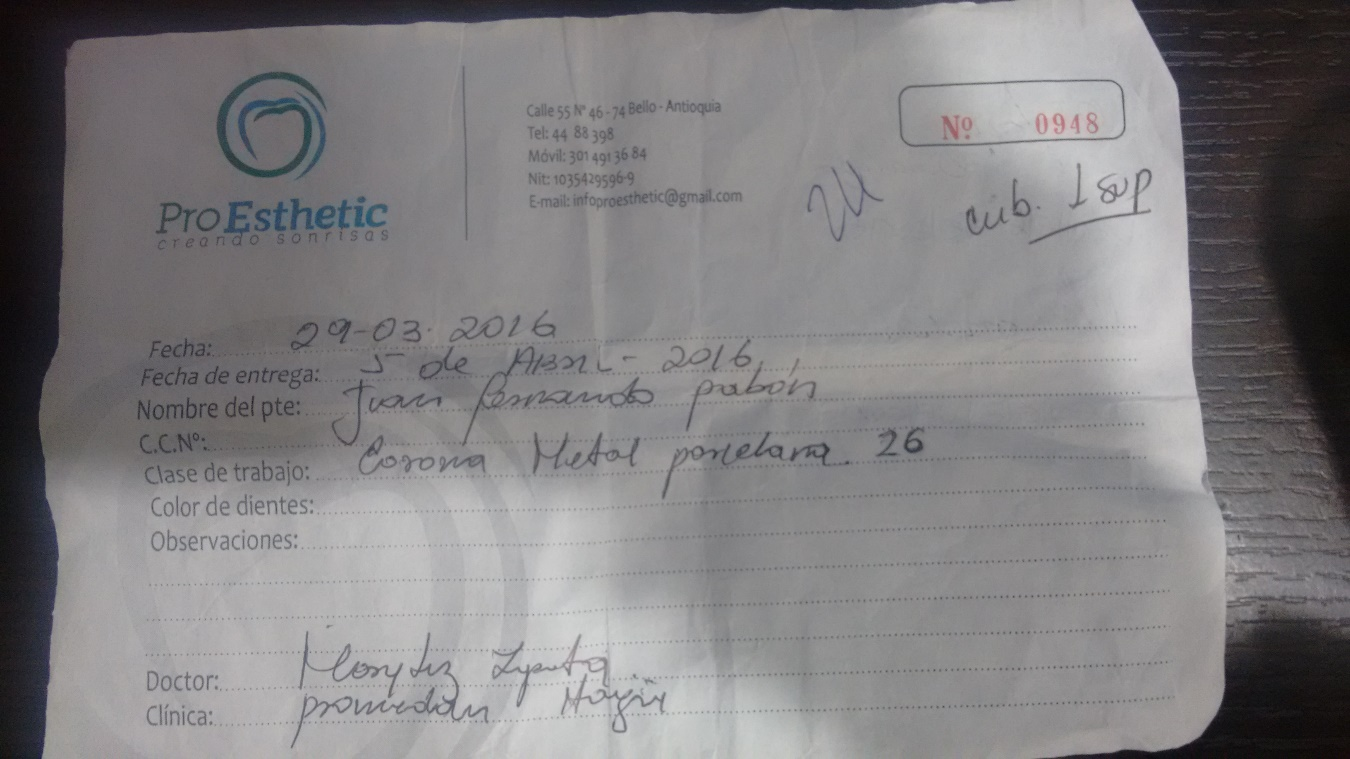 ProEsthetic
creando sonrisas
Calle 55 N° 46 - 74 Bello - Antioquia
Tel: 44 88 398
Móvil: 301 491 36 84
Nit: 1035429596-9
E-mail: infoproesthetic@gmail.com
Nº 0948
cub. 1 sup
Fecha: 29-03-2016
Fecha de entrega: 5 de Abril - 2016
Nombre del pte: Juan Fernando pabón
C.C.Nº:
Clase de trabajo: Corona Metal porcelana. 26
Color de dientes:
Observaciones:
Doctor:
Clínica: